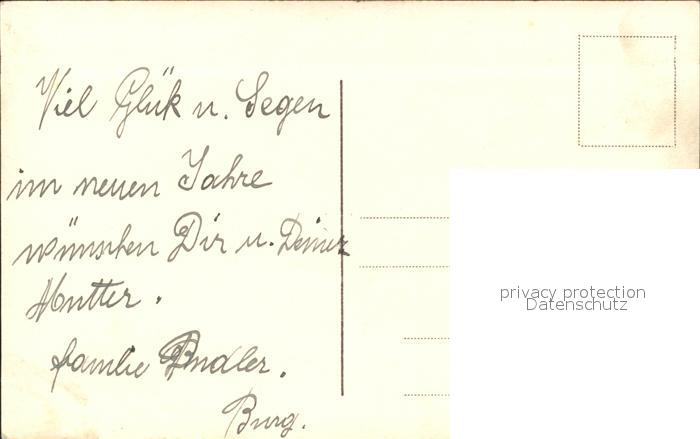 Viel Glük u. Segen
im neuen Jahre
wünschen Dir u. Deiner
Mutter.
familie
Burg.
privacy protection
Datenschutz